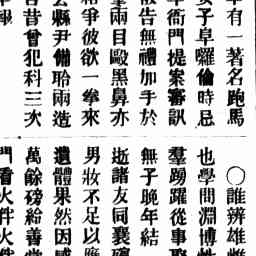 有一著名跑馬
女子阜羅倫時忌
衙門提案審訊
散告無禮加手於
擊兩目毆黑鼻亦
相爭彼欲一拳來
縣尹備聆兩造
昔曾犯科三次
報
〇誰辨雄
也學問淵博性
羣踴躍從事
無子晚年結
逝諸友同襄
男妝不足以
遺體果然因
萬餘磅給善
看火件火